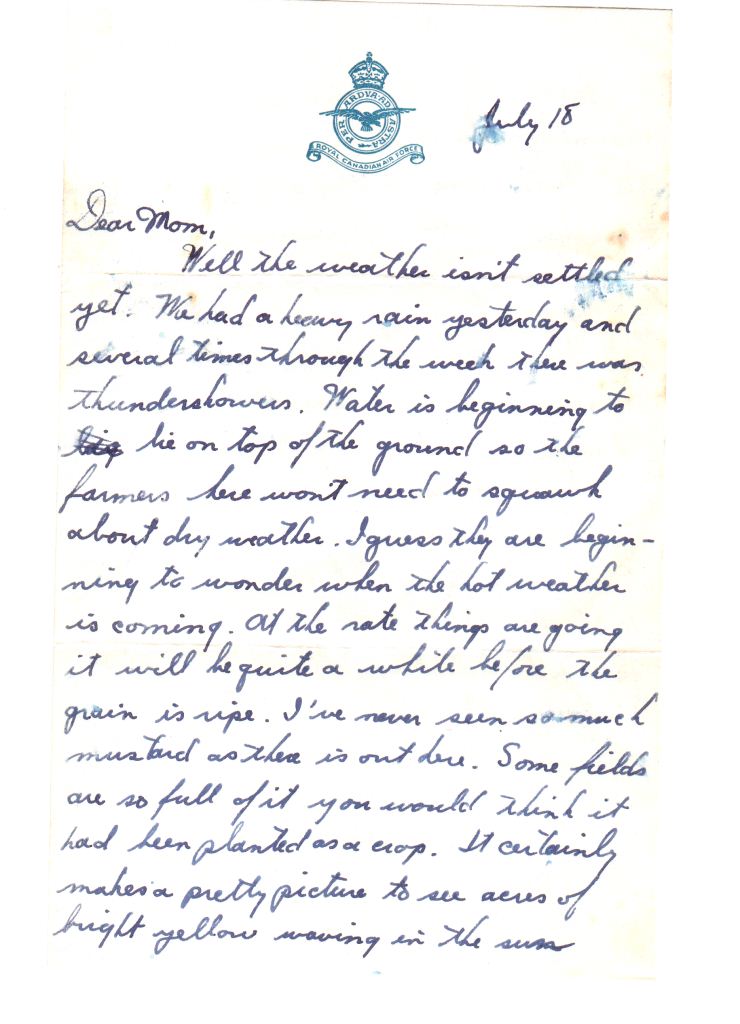 PER ARDVA AD ASTRA
ROYAL CANADIAN AIR FORCE
July 18
Dear Mom,
Well the weather isn't settled
yet. We had a heavy rain yesterday and
several times through the week there was
thundershowers. Water is beginning to
lie on top of the ground so the
farmers here won't need to squawk
about dry weather. I guess they are begin-
ning to wonder when the hot weather
is coming. At the rate things are going
it will be quite a while before the
grain is ripe. I've never seen so much
mustard as there is out here. Some fields
are so full of it you would think it
had been planted as a crop. It certainly
makes a pretty picture to see acres of
bright yellow waving in the sun